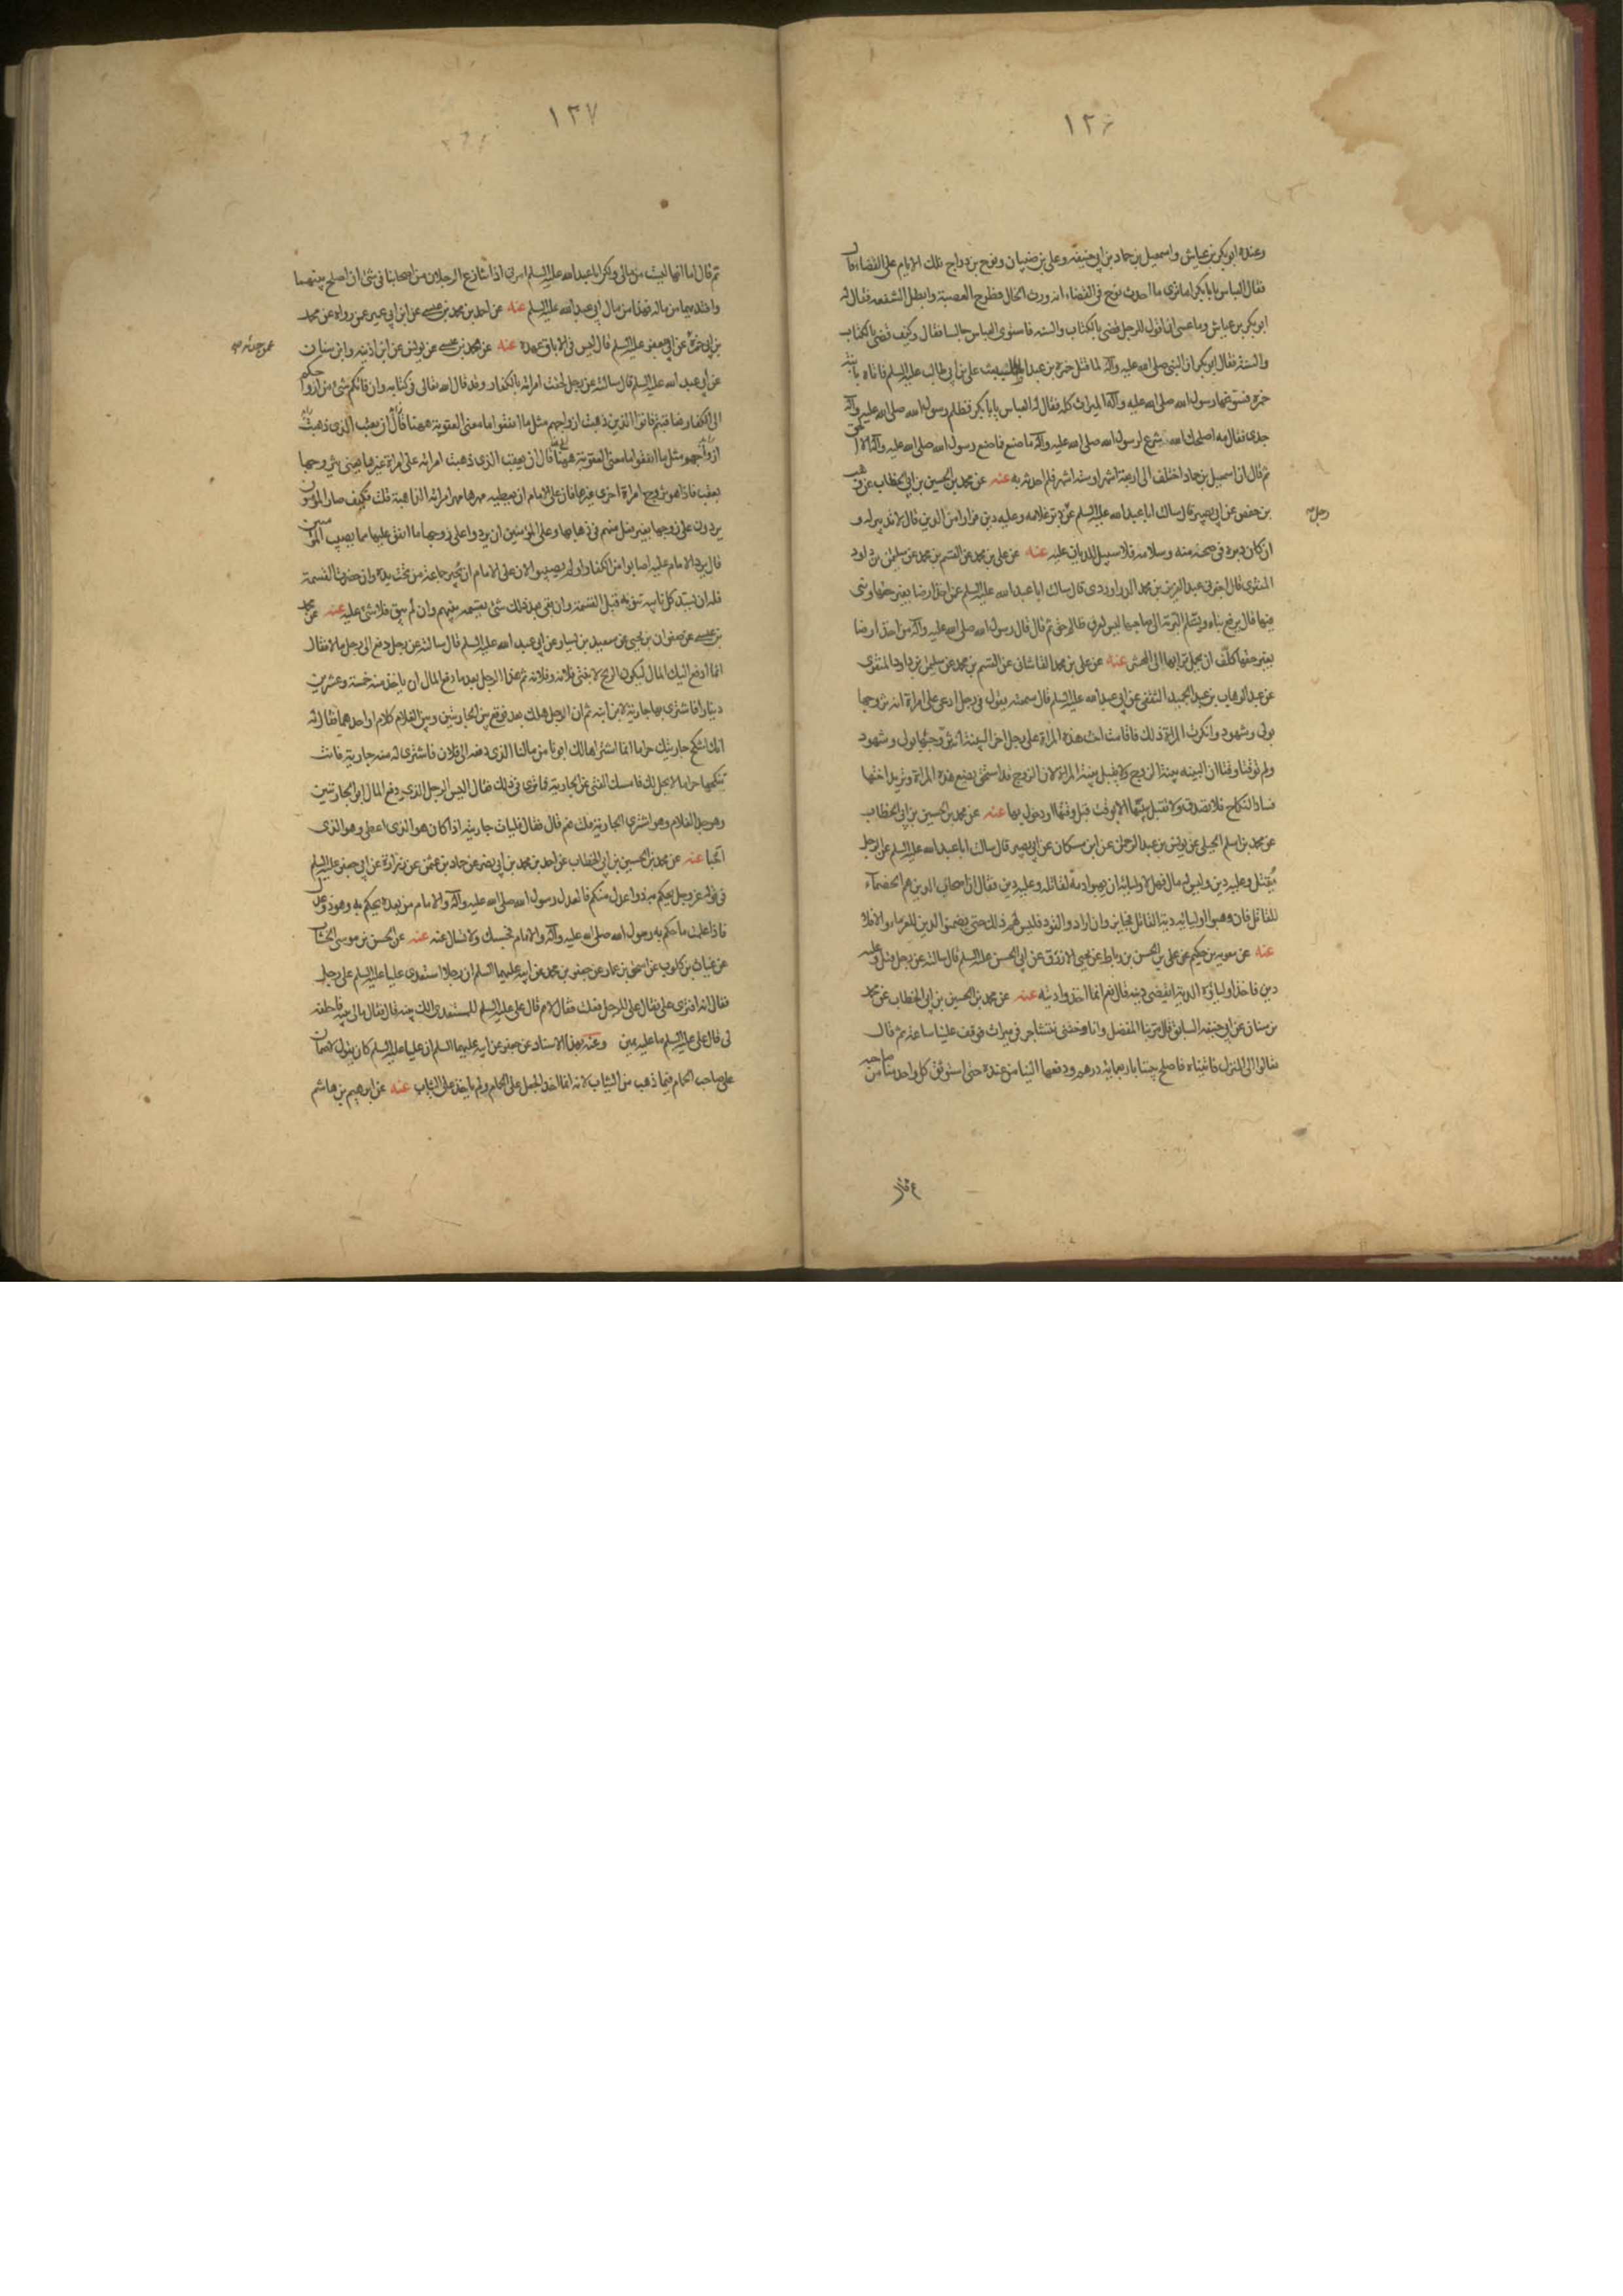 ١٣٦
وعنده ابو بكر بن عياش واسمعيل بن حماد بن ابي حنيفه وعلي بن ضبيان ونوح بن دراج تلك الايام على القضاء قال
فقال العباس يا با بكر اما ترى ما احدث نوح في القضاء انه ورث الخال وطرح العصبة وابطل الشفعه فقال له
ابو بكر بن عياش وما عسى ان اقول للرجل قضى بالكتاب والسنه فاستوى العباس جالسا فقال وكيف قضى بالكتاب
والسنة فقال ابو بكر ان النبي صلى الله عليه وآله لما قتل حمزه بن عبد المطلب بعث علي بن ابي طالب عليه السلم فاتاه بابنة
حمزه فسوغها رسول الله صلى الله عليه وآله الميراث كله فقال له العباس يا با بكر فظلم رسول الله صلى الله عليه وآله
جدي فقال مه اصلحك الله شرع لرسول الله صلى الله عليه وآله ما صنع فما صنع رسول الله صلى الله عليه وآله الا الحق
ثم قال ان اسمعيل بن حماد اختلف الي اربعة اشهر او ستة اشهر فلم احدثه به عنه عن محمد بن الحسين بن ابي الخطاب عن وهيب
بن حفص عن ابي بصير قال سالت ابا عبد الله عليه السلم عن دبر غلامه وعليه دين فرارا من الدين قال لا تدبير له و
رجل
ان كان دبره في صحة منه وسلامة فلا سبيل للديان عليه عنه عن علي بن محمد عن القسم بن محمد عن سليمن بن داود
المنقري قال اخبرني عبد العزيز بن محمد الدراوردي قال سالت ابا عبد الله عليه السلم عن اخذ ارضا بغير حقها وبنى
فيها قال يرفع بناءه ويسلم التربة الى صاحبها ليس لعرق ظالم حق ثم قال قال رسول الله صلى الله عليه وآله من اخذ ارضا
بغير حقها كلف ان يحمل ترابها الى المحشر عنه عن علي بن محمد القاشاني عن القسم بن محمد عن سليمن بن داود المنقري
عن عبد الوهاب بن عبد الحميد الثقفي عن ابي عبد الله عليه السلم قال سمعته يقول في رجل ادعى على امراة انه تزوجها
بولي وشهود وانكرت المراة ذلك فاقامت اخت هذه المراة على رجل اخر البينة انه تزوجها بولي وشهود
ولم توقتا وقتا ان البينه بينة الزوج ولا تقبل بينة المراة لان الزوج قد استحق بضع هذه المراة وتريد اختها
فساد النكاح فلا تصدق ولا تقبل بينتها الا بوقت قبل وقتها او دخول بها عنه عن محمد بن الحسين بن ابي الخطاب
عن محمد بن اسلم الجبلي عن يونس بن عبد الرحمن عن ابن مسكان عن ابي بصير قال سالت ابا عبد الله عليه السلم عن الرجل
يقتل وعليه دين وليس له مال فهل لاوليائه ان يهبوا دمه لقاتله وعليه دين فقال ان اصحاب الدين هم الخصماء
للقاتل فان وهبوا اوليائه دية القاتل فجايز وان ارادوا القود فليس لهم ذلك حتى يضمنوا الدين للغرماء والا فلا
عنه عن معويه بن حكيم عن علي بن الحسن بن رباط عن يحيى الازرق عن ابي الحسن عليه السلم قال سالته عن رجل قتل وعليه
دين فاخذ اولياؤه الدية ايقضى دينه قال نعم انما اخذوا ديته عنه عن محمد بن الحسين بن ابي الخطاب عن محمد
بن سنان عن ابي حنيفه السابق قال مر بنا المفضل وانا وختني نتشاجر في ميراث فوقف علينا ساعة ثم قال
تعالوا الى المنزل فاتيناه فاصلح بيننا باربعمائة درهم ودفعها الينا من عنده حتى استوثق كل واحد منا من صاحبه
ثم قال
١٣٧
ثم قال اما انها ليست من مالي ولكن ابا عبد الله عليه السلم امرني اذا تنازع الرجلان من اصحابنا في شئ ان اصلح بينهما
وافتديهما من ماله فهذا من مال ابي عبد الله عليه السلم عنه عن احمد بن محمد بن عيسى عن ابن ابي عمير عمن رواه عن محمد
بن ابي حمزه عن ابي جعفر عليه السلم قال ليس في الاباق عهدة عنه عن محمد بن عيسى عن يونس عن ابن اذينه وابن سنان
عمن حدثه
عن ابي عبد الله عليه السلم قال سالته عن رجل لحقت امراته بالكفار وقد قال الله تعالى في كتابه وان فاتكم شئ من ازواجكم
الى الكفار فعاقبتم فاتوا الذين ذهبت ازواجهم مثل ما انفقوا ما معنى العقوبة ههنا قال ان يعقب الذي ذهبت
ازواجهم مثل ما انفقوا ما معنى العقوبة ههنا قال ان يعقب الذي ذهبت امراته على امراة غيرها يعني يتزوجها
بعقب فاذا هو تزوج امراة اخرى غيرها فان على الامام ان يعطيه مهرها مهر امراته الذاهبة قلت فكيف صار المؤمنون
يردون على زوجها بغير فعل منهم في ذهابها وعلى المؤمنين ان يردوا على زوجها ما انفق عليها مما يصيب المؤمنين
قال يرد الامام عليه اصابوا من الكفار او لم يصيبوا لان على الامام ان يجبر جماعة من تحت يده وان حضرت القسمة
فله ان يسد كل نايبه تنوبه قبل القسمة وان بقي بعد ذلك شئ يقسمه بينهم وان لم يبق فلا شئ عليه عنه عن محمد
بن عيسى عن صفوان بن يحيى عن سعيد بن يسار عن ابي عبد الله عليه السلم قال سالته عن رجل دفع الى رجل مالا فقال
انما ادفع اليك المال ليكون الربح لابنتي فلانة وفلانة ثم بدا للرجل بعد ما دفع المال ان ياخذ منه خمسة وعشرين
دينارا فاشترى بها جارية لابن ابنه ثم ان الرجل هلك بعد فوقع بين الجاريتين وبين الغلام كلام او احدهما فقالت له
انك لتنكح جاريتك حراما انما اشتراها لك ابونا من مالنا الذي دفعه الى فلان فاشترى لك منه جارية فانت
تنكحها حراما لا يحل لك فامسك الفتى عن الجارية فما ترى في ذلك فقال اليس الرجل الذي دفع المال ابو الجاريتين
وهو جد الغلام وهو اشترى الجارية منك نعم قال فقال فليات جاريته اذا كان هو الذي اعطى وهو الذي
اخذ عنه عن محمد بن الحسين بن ابي الخطاب عن احمد بن محمد بن ابي نصر عن حماد بن عثمن عن زرارة عن ابي جعفر عليه السلم
في قوله عز وجل يحكم به ذوا عدل منكم فالعدل رسول الله صلى الله عليه وآله والامام من بعده يحكم به وهو ذو عدل
فاذا علمت ما حكم به رسول الله صلى الله عليه وآله والامام فحسبك ولا تسال عنه عنه عن الحسن بن موسى الخشاب
عن غياث بن كلوب عن اسحق بن عمار عن جعفر بن محمد عن ابيه عليهما السلم ان رجلا استعدى عليا عليه السلم على رجل
فقال انه افترى علي فقال علي للرجل افعلت فقال لا ثم قال علي عليه السلم للمستعدي الك بينه قال فقال مالي بينه فاحلفه
لي قال علي عليه السلم ما عليه يمين وعنه بهذا الاسناد عن جعفر عن ابيه عليهما السلم ان عليا عليه السلم كان يقول لا ضمان
على صاحب الحمام فيما ذهب من الثياب لانه انما اخذ الجعل على الحمام ولم ياخذ على الثياب عنه عن ابرهيم بن هاشم